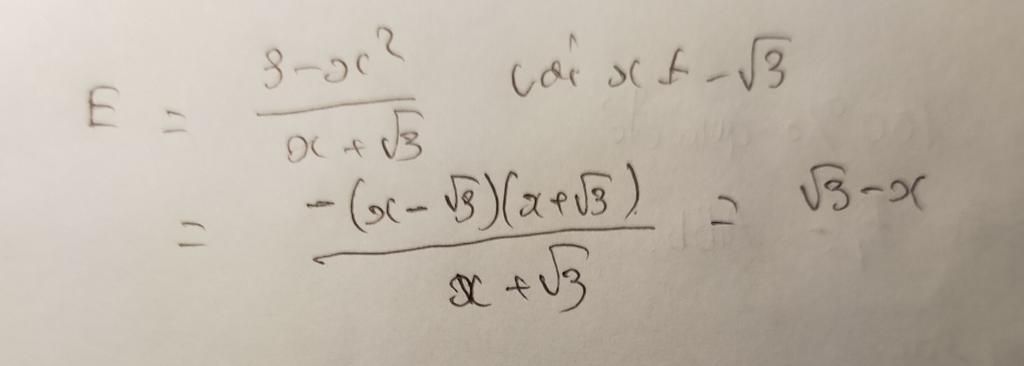 E = \frac{3-x^2}{x+\sqrt{3}} với x ≠ -\sqrt{3}
= \frac{-(x-\sqrt{3})(x+\sqrt{3})}{x+\sqrt{3}} = \sqrt{3}-x